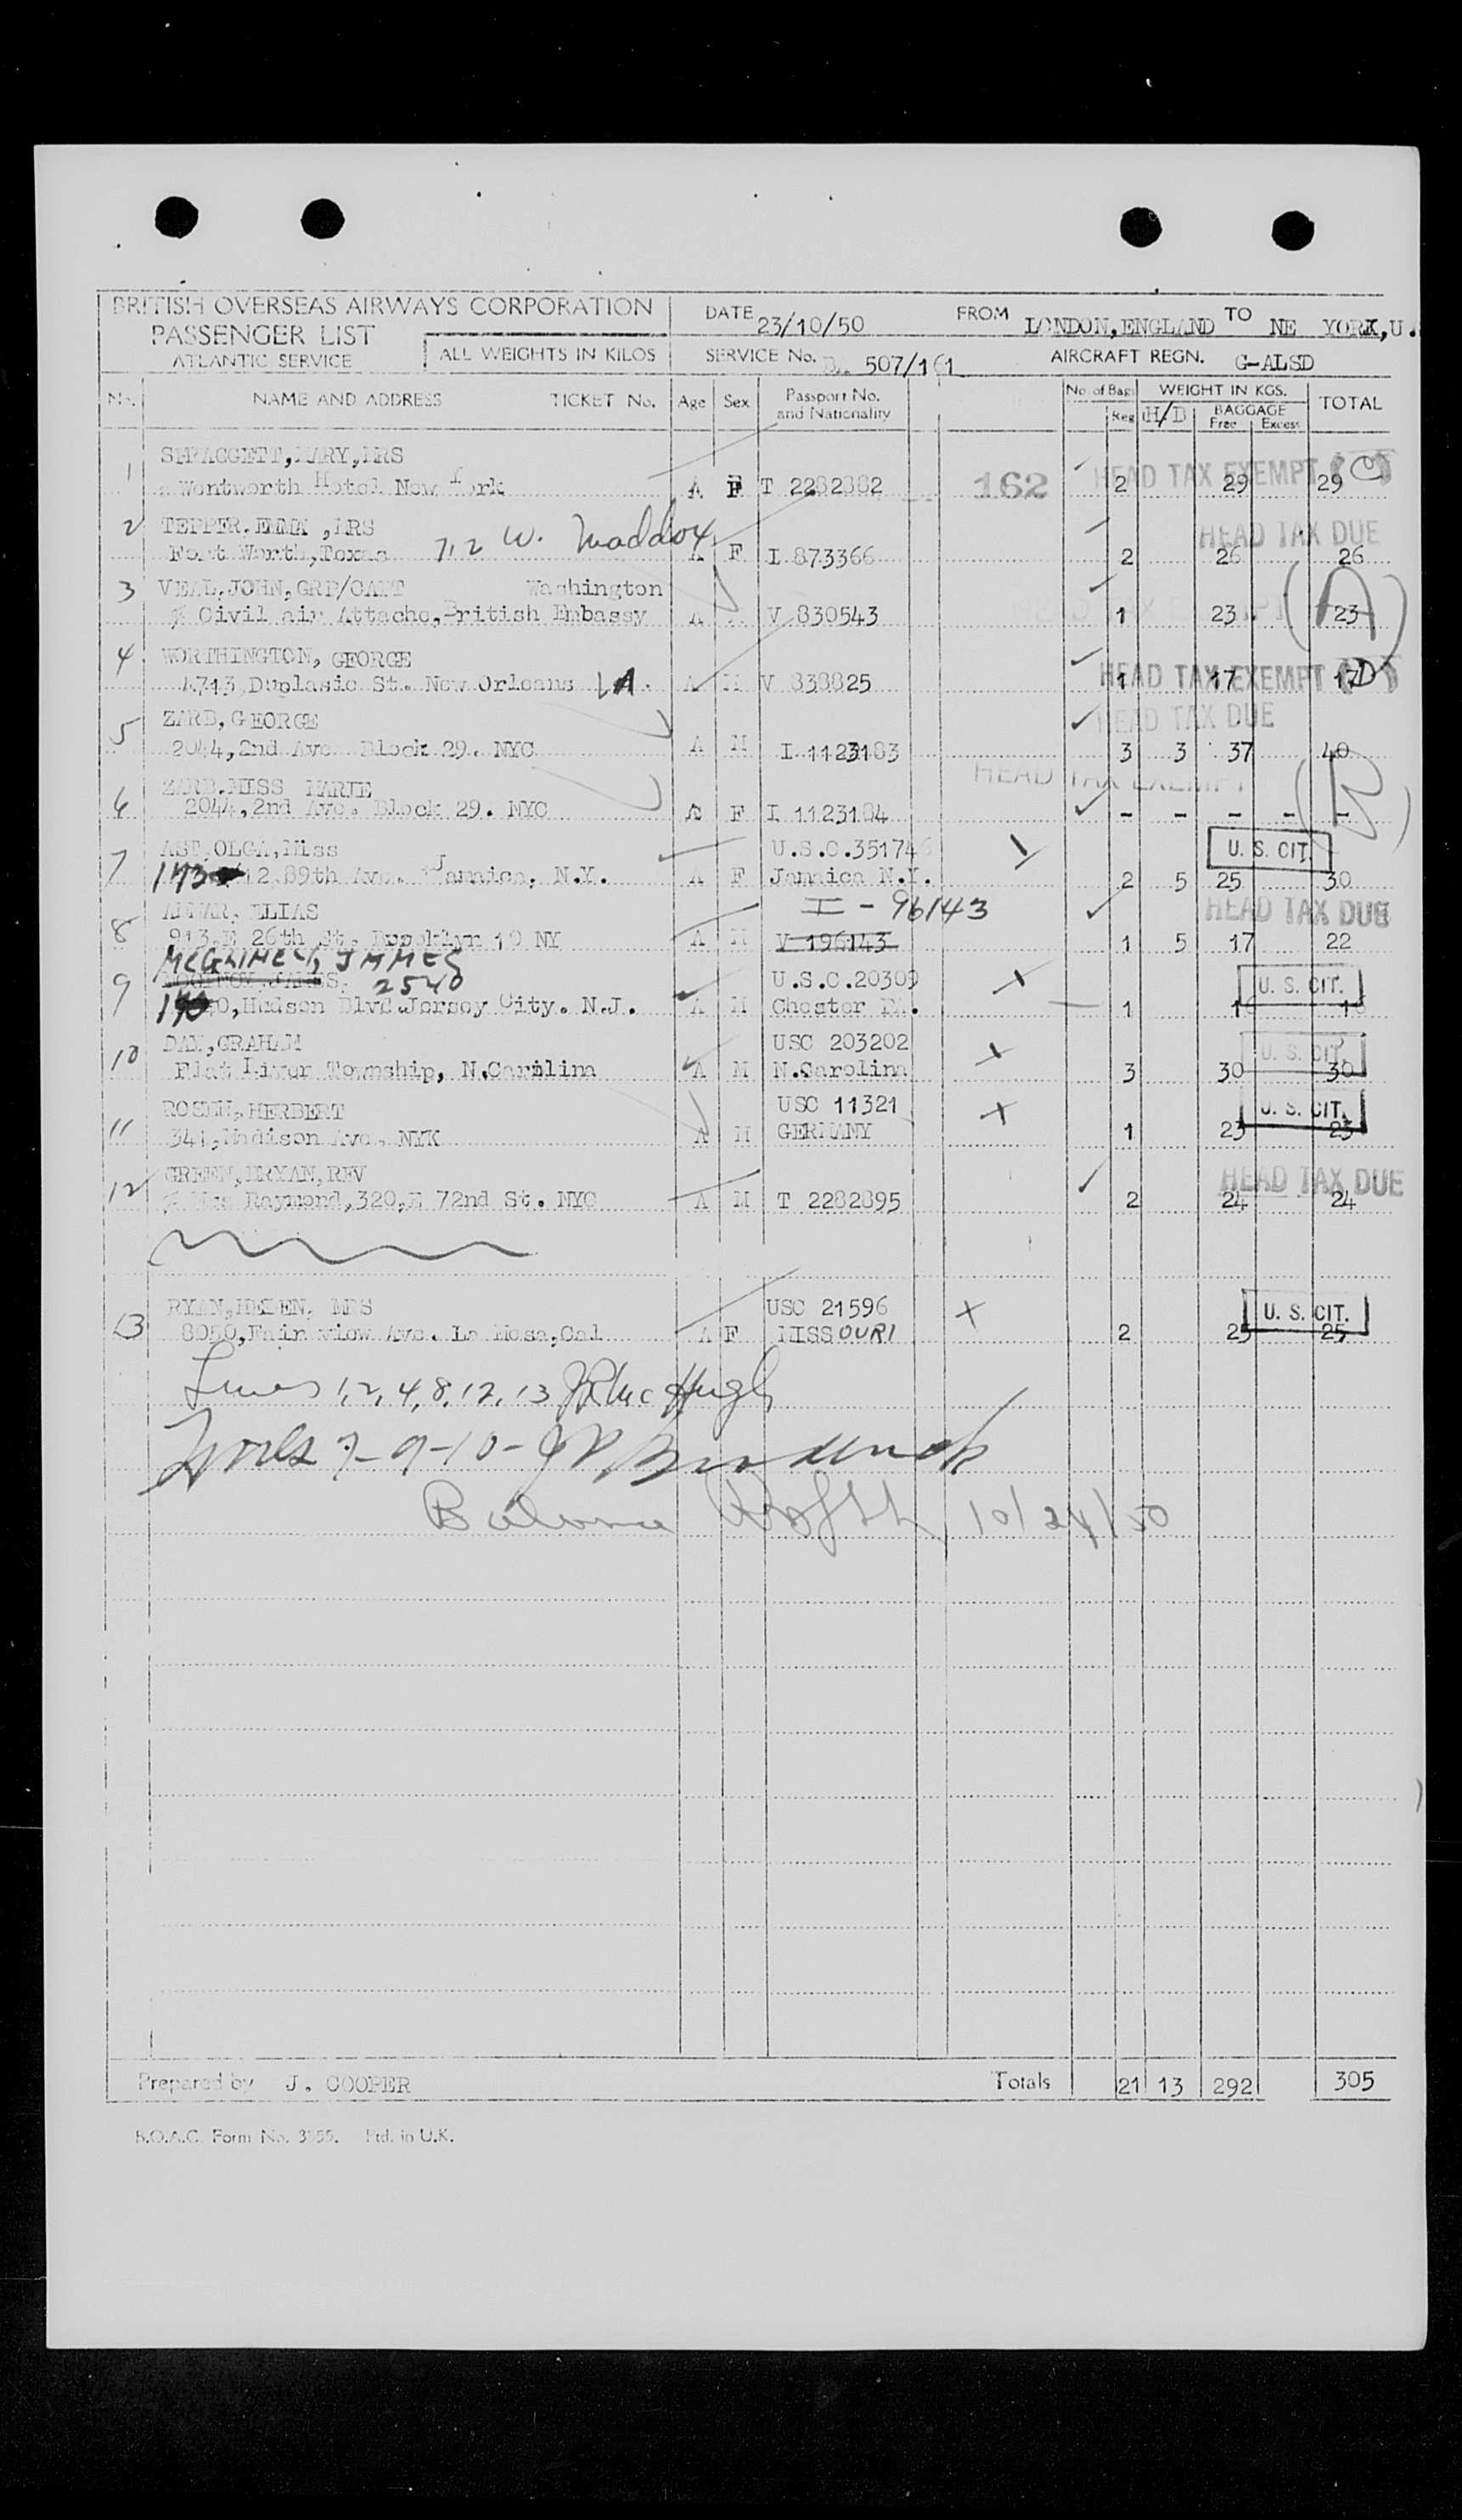 BRITISH OVERSEAS AIRWAYS CORPORATION
PASSENGER LIST
ATLANTIC SERVICE
ALL WEIGHTS IN KILOS
DATE 23/10/50 FROM LONDON,ENGLAND TO NE YORK,U.
SERVICE No. 507/161 AIRCRAFT REGN. G-ALSD
No. NAME AND ADDRESS TICKET No. Age Sex Passport No. and Nationality No. of Bags Reg H/B WEIGHT IN KGS. BAGGAGE Free Excess TOTAL
1 SPRAGGETT,MARY,MRS HEAD TAX EXEMPT (C)
Wentworth Hotel New York A F T 2282882 162 2 29 29
2 TEPPER.EMMA ,MRS HEAD TAX DUE
Fort Worth,Texas 712 W. Maddox A F I 873366 2 26 26
3 VEAL,JOHN,GRP/CAPT Washington
Civil air Attache,British Embassy A M V 830543 1 23 23 (A)
4 WORTHINGTON, GEORGE
4713 Duplasic St. New Orleans LA. A M V 838825 HEAD TAX EXEMPT (D) 1 17 17
5 ZARB,GEORGE HEAD TAX DUE
2044,2nd Ave Block 29. NYC A M I 1123183 3 3 37 40
6 ZARB.MISS MARIE HEAD TAX EXEMPT
2044,2nd Ave. Block 29. NYC F I 1123184 - - - - -
7 AST,OLGA,Miss U.S.C.351746 U. S. CIT.
173 12 89th Ave. Jamaica, N.Y. A F Jamaica N.Y. 2 5 25 30
8 ANNAR, ELIAS I - 96143 HEAD TAX DUE
913.E 26th St. Brooklyn 10 NY A M V 196143 1 5 17 22
MCGLINCEY, JAMES
9 2540 U.S.C.20309 U. S. CIT.
Hudson Blvd Jersey City. N.J. A M Chester PA. 1 16 16
10 DAM,GRAHAM USC 203202 U. S. CIT.
Flat River Township, N.Carolina A M N.Carolina 3 30 30
11 ROSEN,HERBERT USC 11321 U. S. CIT.
341,Madison Ave. NYK A M GERMANY 1 23 23
12 GREEN,BRYAN,REV HEAD TAX DUE
Mrs Raymond,320,E 72nd St. NYC A M T 2282895 2 24 24
13 RYAN,HELEN, MRS USC 21596 U. S. CIT.
8050,Fairview Ave. La Mesa,Cal A F MISSOURI 2 25 25
Lines 1,2,4,8,12,13
7-9-10-
Balance 10/24/50
Prepared by J. COOPER Totals 21 13 292 305
B.O.A.C. Form No. Ptd. in U.K.